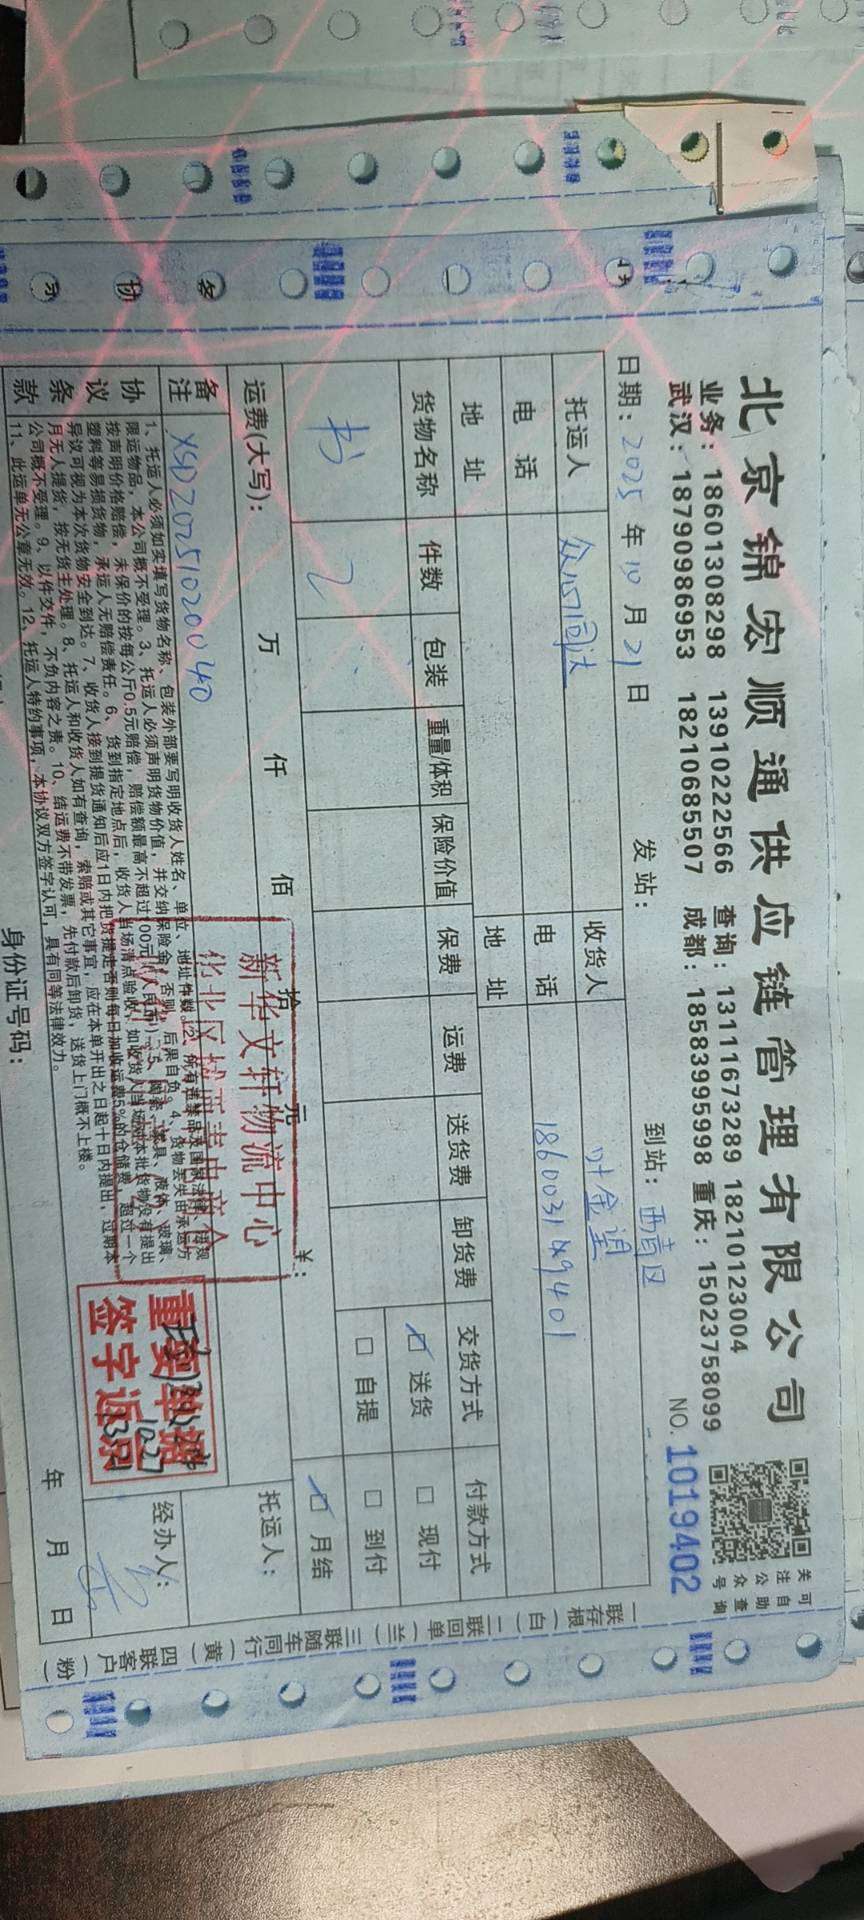 北京锦宏顺通供应链管理有限公司
业务：18601308298 13910222566 查询：13111673289 18210123004
武汉：18790986953 18210685507 成都：18583995998 重庆：15023758099
关注公众号
可自助查询
NO. 1019402
日期：2025年10月21日 发站： 到站：西青区
托运人 众心同达 收货人 叶金
电话 电话
地址 地址
货物名称 件数 包装 重量/体积 保险价值 保费 运费 送货费 卸货费 交货方式 付款方式
书 2 送货 现付
自提 到付
月结
运费(大写)： 万 仟 佰 拾 元 ¥：
托运人：
备注 XSD202510200040
经办人：
协议条款
1、托运人必须如实填写货物名称、包装外部要写明收货人姓名、单位、地址件数。2、所有违禁品及国家法律、法规
限运物品，本公司概不受理。3、托运人必须声明货物价值，并交纳保险金，否则，后果自负。4、货物丢失由承运方
按声明价格赔偿，未保价的按每公斤0.5元赔偿，赔偿额最高不超过100元(人民币)。5、陶瓷、家具、液体、玻璃、
塑料等易损货物，承运人无赔偿责任。6、货到指定地点后，收货人当场清点验收，如收货人当场对本批货物没有提出
异议可视为本次货物安全到达。7、收货人接到提货通知后应1日内把货提走否则每日加收运费5%的仓储费，超过一个
月无人提货，按无货主处理。8、托运人和收货人如有查询，索赔或其它事宜，应在本单开出之日起十日内提出，过期本
公司概不受理。9、以件交件，不负内容之责。10、结运费不带发票，先付款后卸货，送货上门概不上楼。
11、此运单无公章无效。12、托运人特约事项，本协议双方签字认可，具有同等法律效力。
新华文轩物流中心
重要单据
签字返回
10.27
身份证号码： 年 月 日
一联存根(白) 二联回单(兰) 三联随车同行(黄) 四联客户(粉)